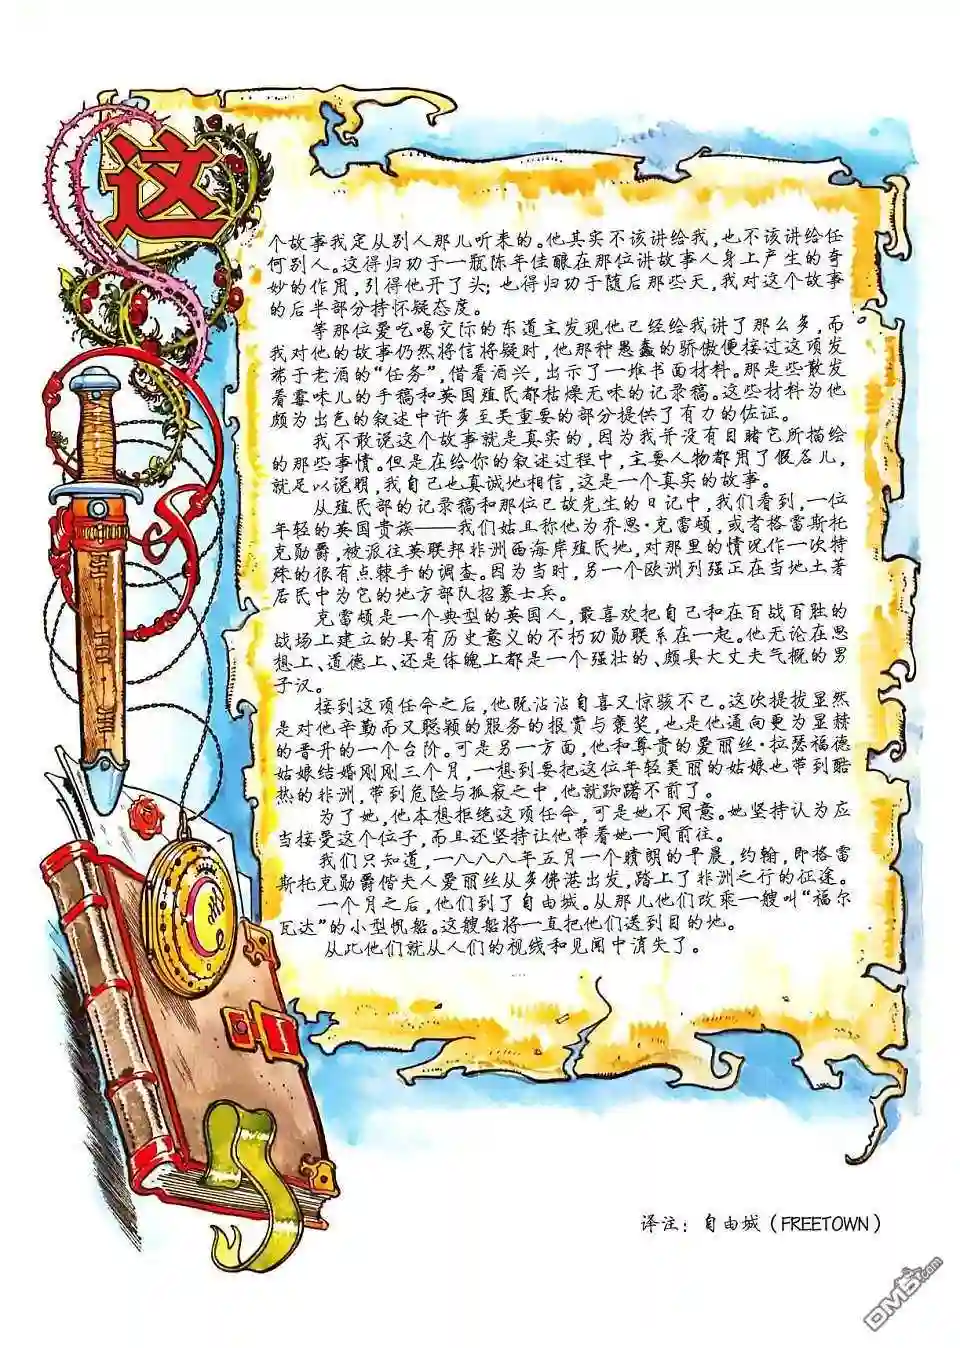 这
个故事我是从别人那儿听来的。他其实不该讲给我,也不该讲给任
何别人。这得归功于一瓶陈年佳酿在那位讲故事人身上产生的奇
妙的作用,引得他开了头;也得归功于随后那些天,我对这个故事
的后半部分持怀疑态度。
等那位爱吃喝交际的东道主发现他已经给我讲了那么多,而
我对他的故事仍然将信将疑时,他那种愚蠢的骄傲便接过这项发
端于老酒的“任务”,借着酒兴,出示了一堆书面材料。那是些散发
着霉味儿的手稿和英国殖民部枯燥无味的记录稿。这些材料为他
颇为出色的叙述中许多至关重要的部分提供了有力的佐证。
我不敢说这个故事就是真实的,因为我并没有目睹它所描绘
的那些事情。但是在给你的叙述过程中,主要人物都用了假名儿,
就足以说明,我自己也真诚地相信,这是一个真实的故事。
从殖民部的记录稿和那位已故先生的日记中,我们看到,一位
年轻的英国贵族——我们姑且称他为乔思·克雷顿,或者格雷斯托
克勋爵,被派往英联邦非洲西海岸殖民地,对那里的情况作一次特
殊的很有点棘手的调查。因为当时,另一个欧洲列强正在当地土著
居民中为它的地方部队招募士兵。
克雷顿是一个典型的英国人,最喜欢把自己和在百战百胜的
战场上建立的具有历史意义的不朽功勋联系在一起。他无论在思
想上、道德上、还是体魄上都是一个强壮的、颇具大丈夫气概的男
子汉。
接到这项任命之后,他既沾沾自喜又惊骇不已。这次提拔显然
是对他辛勤而又聪颖的服务的报赏与褒奖,也是他通向更为显赫
的晋升的一个台阶。可是另一方面,他和尊贵的爱丽丝·拉瑟福德
姑娘结婚刚刚三个月,一想到要把这位年轻美丽的姑娘也带到酷
热的非洲,带到危险与孤寂之中,他就踟躇不前了。
为了她,他本想拒绝这项任命,可是她不同意。她坚持认为应
当接受这个位子,而且还坚持让他带着她一同前往。
我们只知道,一八八八年五月一个晴朗的早晨,约翰,即格雷
斯托克勋爵偕夫人爱丽丝从多佛港出发,踏上了非洲之行的征途。
一个月之后,他们到了自由城。从那儿他们改乘一艘叫“福尔
瓦达”的小型帆船。这艘船将一直把他们送到目的地。
从此他们就从人们的视线和见闻中消失了。
译注:自由城(FREETOWN)
DM5.com